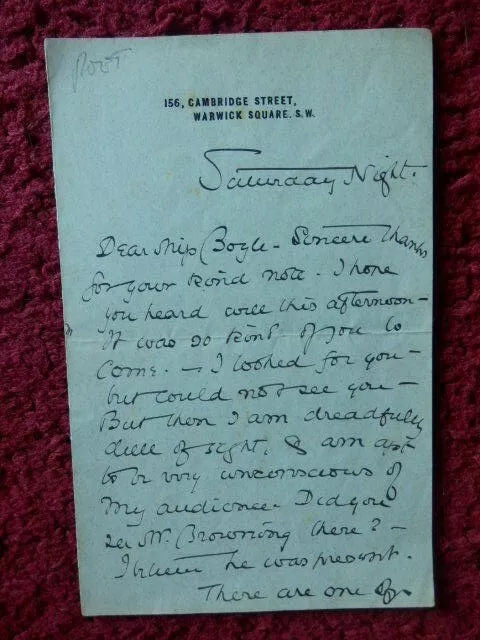 Poet
156, CAMBRIDGE STREET,
WARWICK SQUARE. S.W.
Saturday Night.
Dear Miss Bogle - Sincere thanks
for your kind note - I hope
you heard well this afternoon -
It was so kind of you to
come. - I looked for you -
but could not see you -
But then I am dreadfully
dull of sight, & am apt
to be very unconscious of
my audience. Did you
see Mr. Browning there? -
I believe he was present.
There are one or